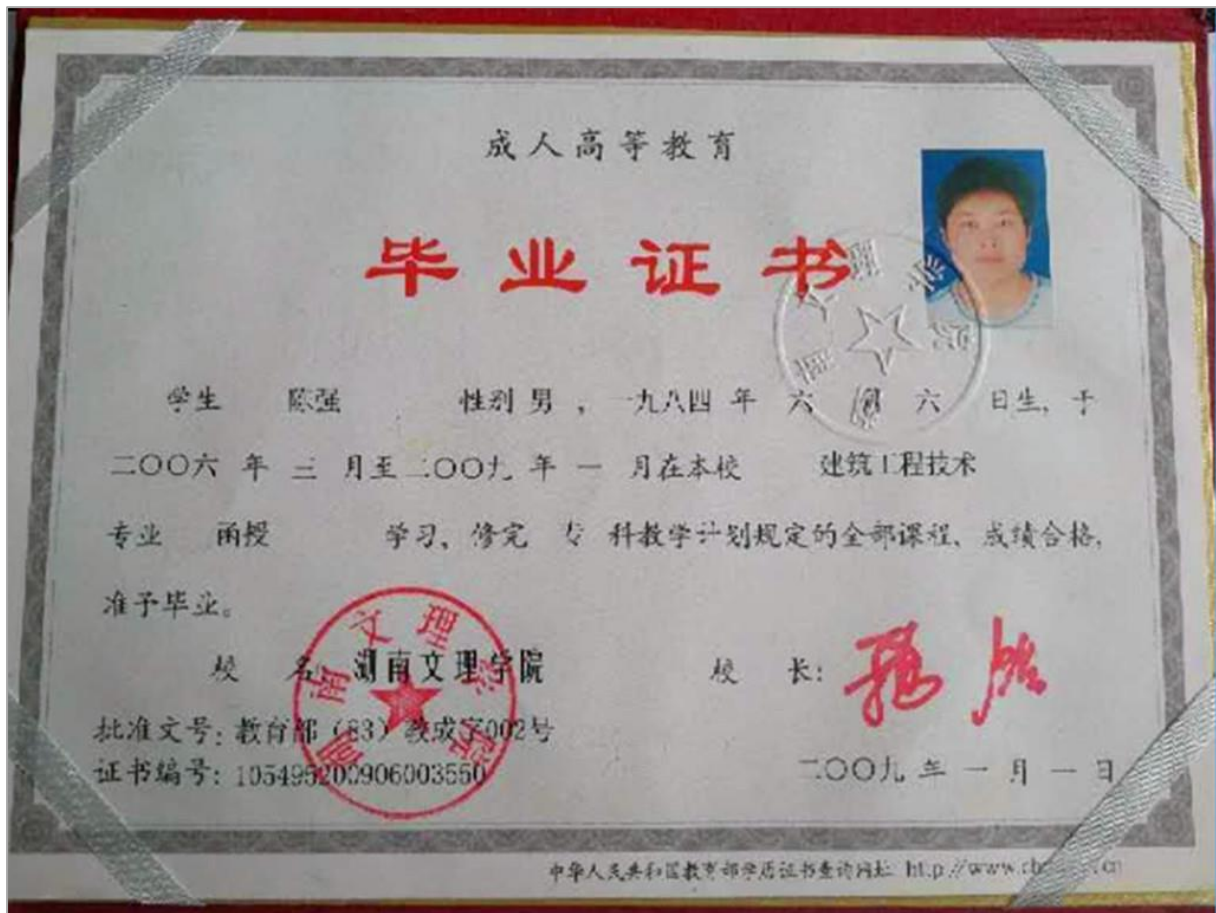 成人高等教育
毕业证书
学生 陈强 性别 男 , 一九八四 年 六 月 六 日生, 于
二〇〇六 年 三 月至 二〇〇九 年 一 月在本校 建筑工程技术
专业 函授 学习, 修完 专 科教学计划规定的全部课程, 成绩合格,
准予毕业。
校 名 湖南文理学院 校 长:
批准文号: 教育部 (83) 教成字002号
证书编号: 105495200906003550
二〇〇九 年 一 月 一 日
中华人民共和国教育部学历证书查询网址: http://www.
湖南文理学院
湖南文理学院